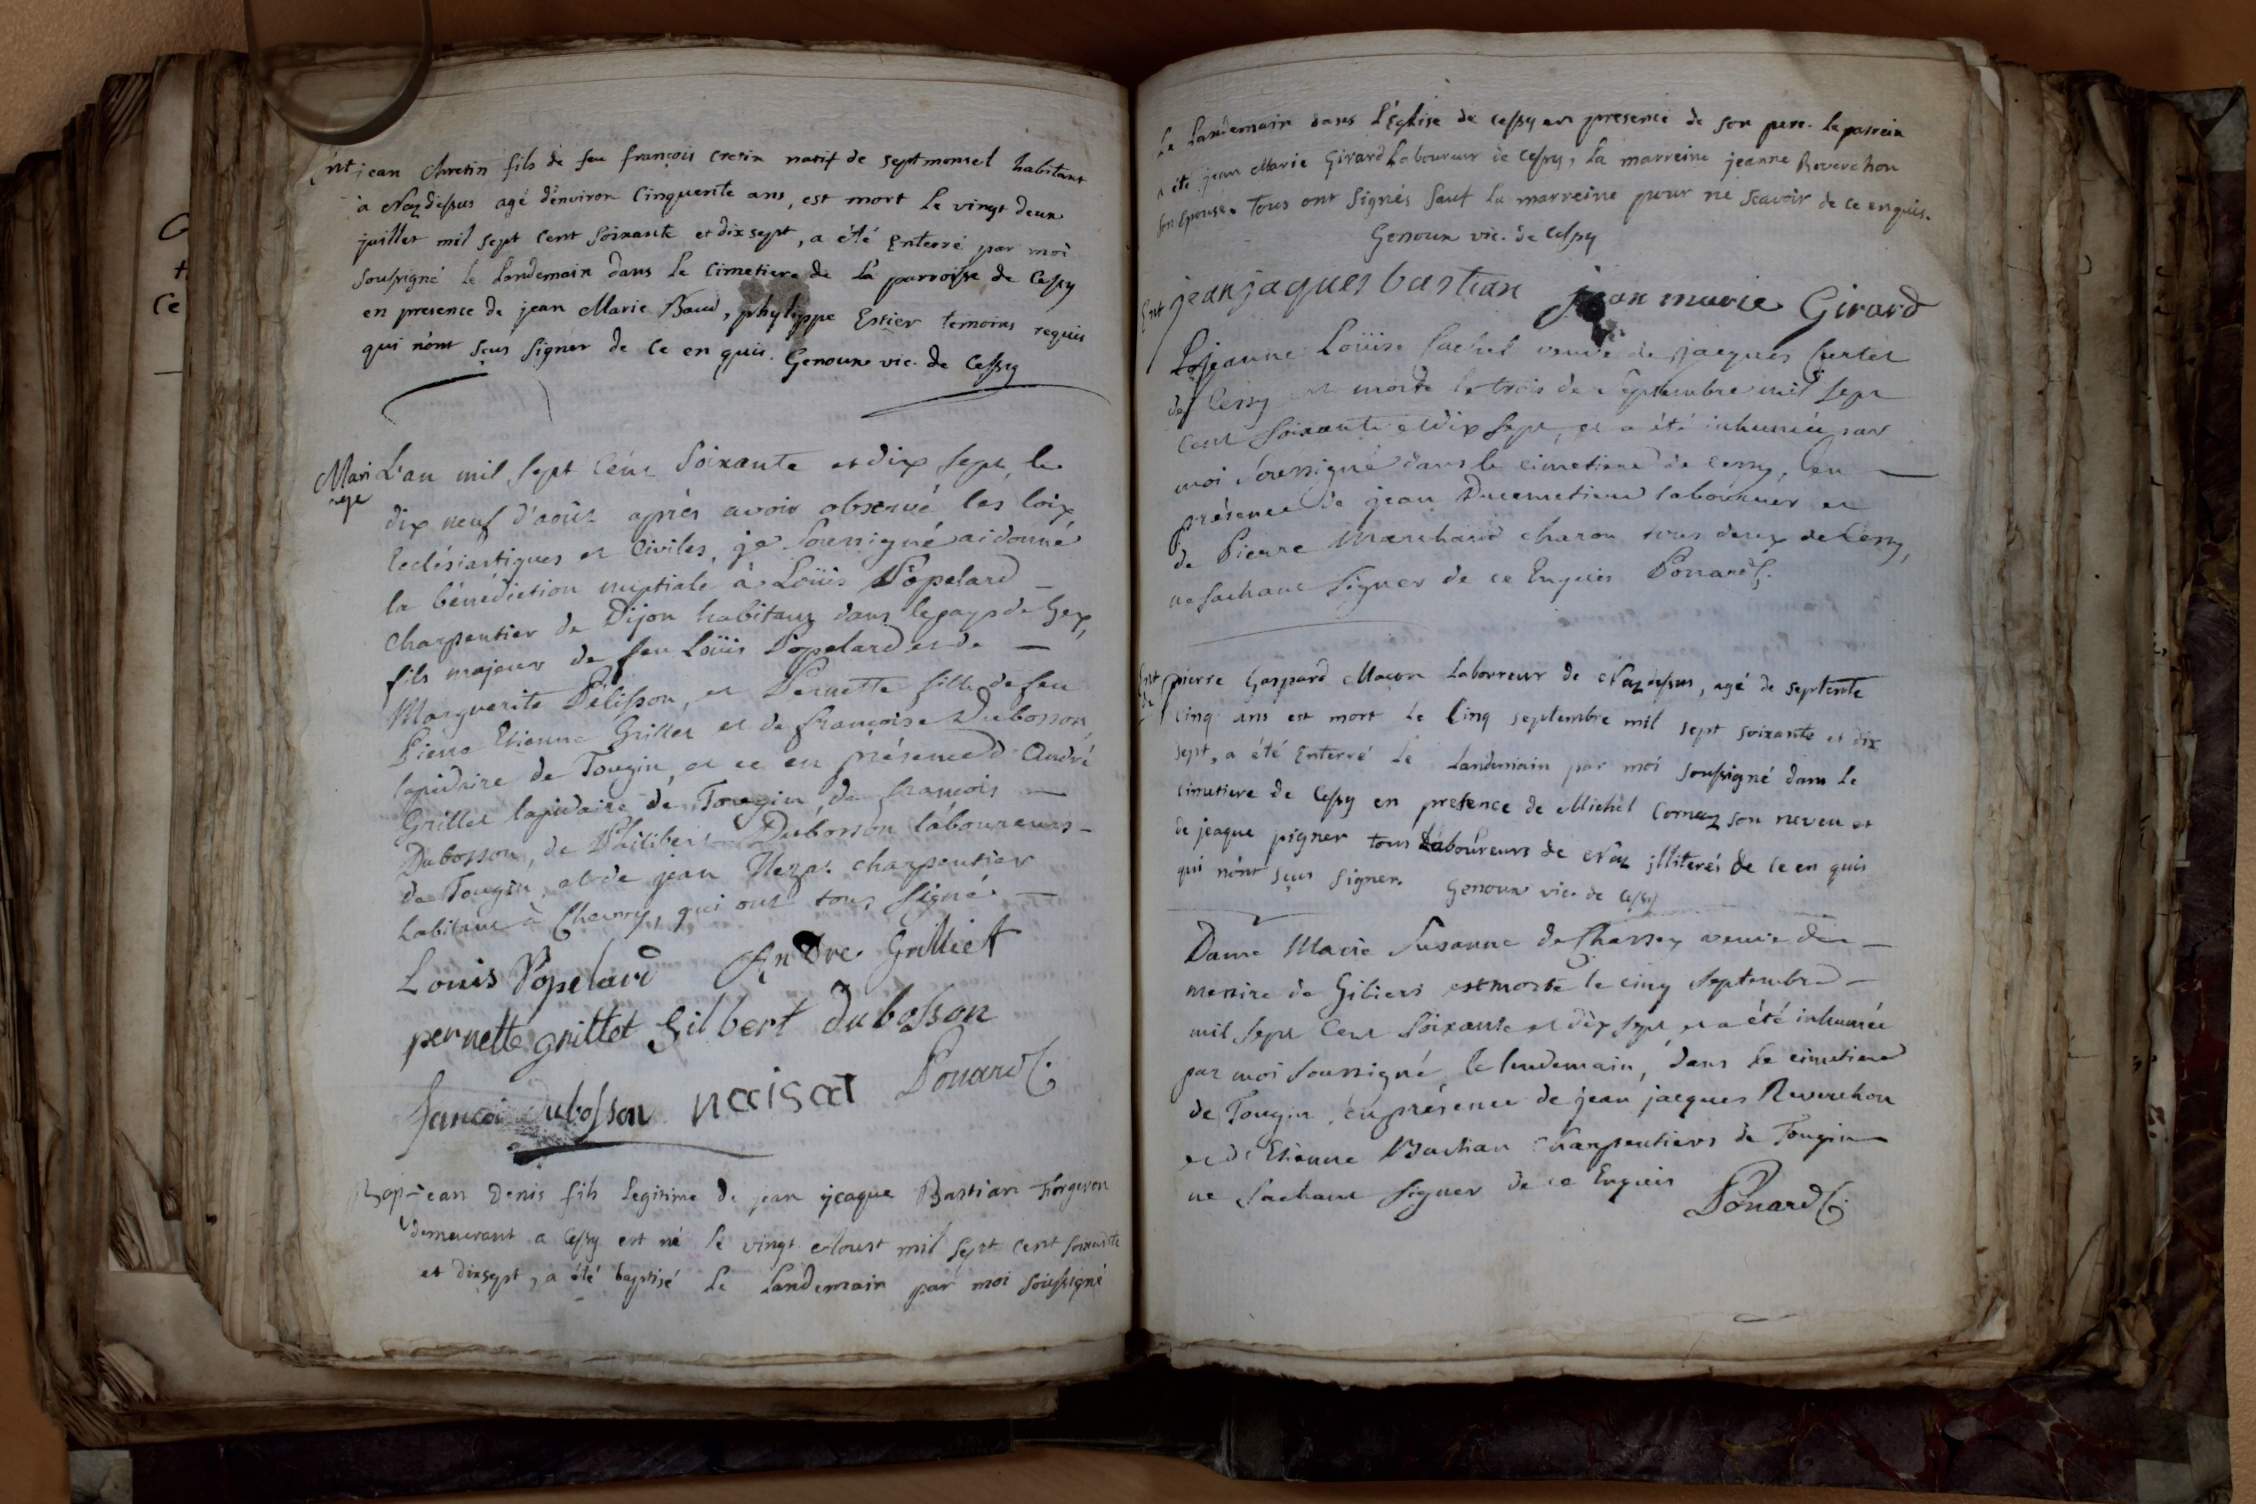 Ent jean Chretin fils de feu françois cretin natif de septmoncel habitant
à Nazdessus agé d'environ Cinquente ans, est mort Le vingt deux
juillet mil sept cent soixante et dix sept, a été Enterré par moi
soussigné le Landemain dans Le Cimetiere de La parroisse de Cessy
en presence de jean Marie Baud, phylippe Estier temoins requis
qui n'ont sçus signer de Ce en quis. Genoux vic. de Cessy
Mari L'an mil sept Cent soixante et dix sept, le
age dix neuf d'août après avoir observé les loix
Ecclésiastiques et Civiles, je soussigné ai donné
la bénédiction nuptiale à Loüis Popelard
charpentier de Dijon habitant dans le pays de Gex,
fils majeur de feu Loüis Popelard et de
Marguerite Pélisson, et Pernette fille de feu
Pierre Etienne Grillet et de françoise Dubosson
lapidaire de Tougin, et ce en présence d'André
Grillet lapidaire de Tougin, de françois
Dubosson, de Philibert Dubosson laboureurs
de Tougin, et de jean charpentier
habitant à Chevry, qui ont tous signé.
Louis Popelard Andre Grilliet
pernette grillet Gilbert dubosson
françoi dubosson naisat Ponard C.
Bap jean Denis fils Legitime de jean jeaque Bastian Forgeron
demeurant a Cessy est né le vingt Aoust mil sept cent soixante
et dixsept, a été baptisé Le Landemain par moi soussigné
Le Landemain dans L'Eglise de Cessy en presence de son pere. Le parrein
a été jean Marie Girard Laboureur de Cessy, La marreine jeanne Reverchon
son Epouse. Tous ont signés sauf La marreine pour ne sçavoir de ce enquis.
Genoux vic. de Cessy
jean jaques bastian jean marie Girard
Ent jeanne Loüise veuve de jacques
de Cessy est morte le trois de septembre mil sept
cent soixante et dix sept, et a été inhumée par
moi soussigné dans le cimetiere de cessy, en
présence de jean Ducimetiere laboureur et
de Pierre Marchand charon tous deux de Cessy,
ne sachant signer de ce Enquis Ponard C.
Ent pierre Gaspard Maçon Laboureur de Nazdessus, agé de septente
cinq ans est mort Le Cinq septembre mil sept soixante et dix
sept, a été Enterré Le Landemain par moi soussigné dans Le
cimetiere de Cessy en presence de Michel Cornaz son neveu et
de jeaque pigner tous Laboureurs de Naz illiterés de ce en quis
qui n'ont sçus signer. Genoux vic. de Cessy
Dame Marie Susanne de Chassey veuve de
messire de Gibiers est morte le cinq septembre
mil sept Cent soixante et dix sept et a été inhumée
par moi soussigné, le lendemain, dans le cimetiere
de Tougin, en présence de jean jacques Reverchon
et d'Etienne Bastian Charpentiers de Tougin
ne sachant signer de ce Enquis Ponard C.